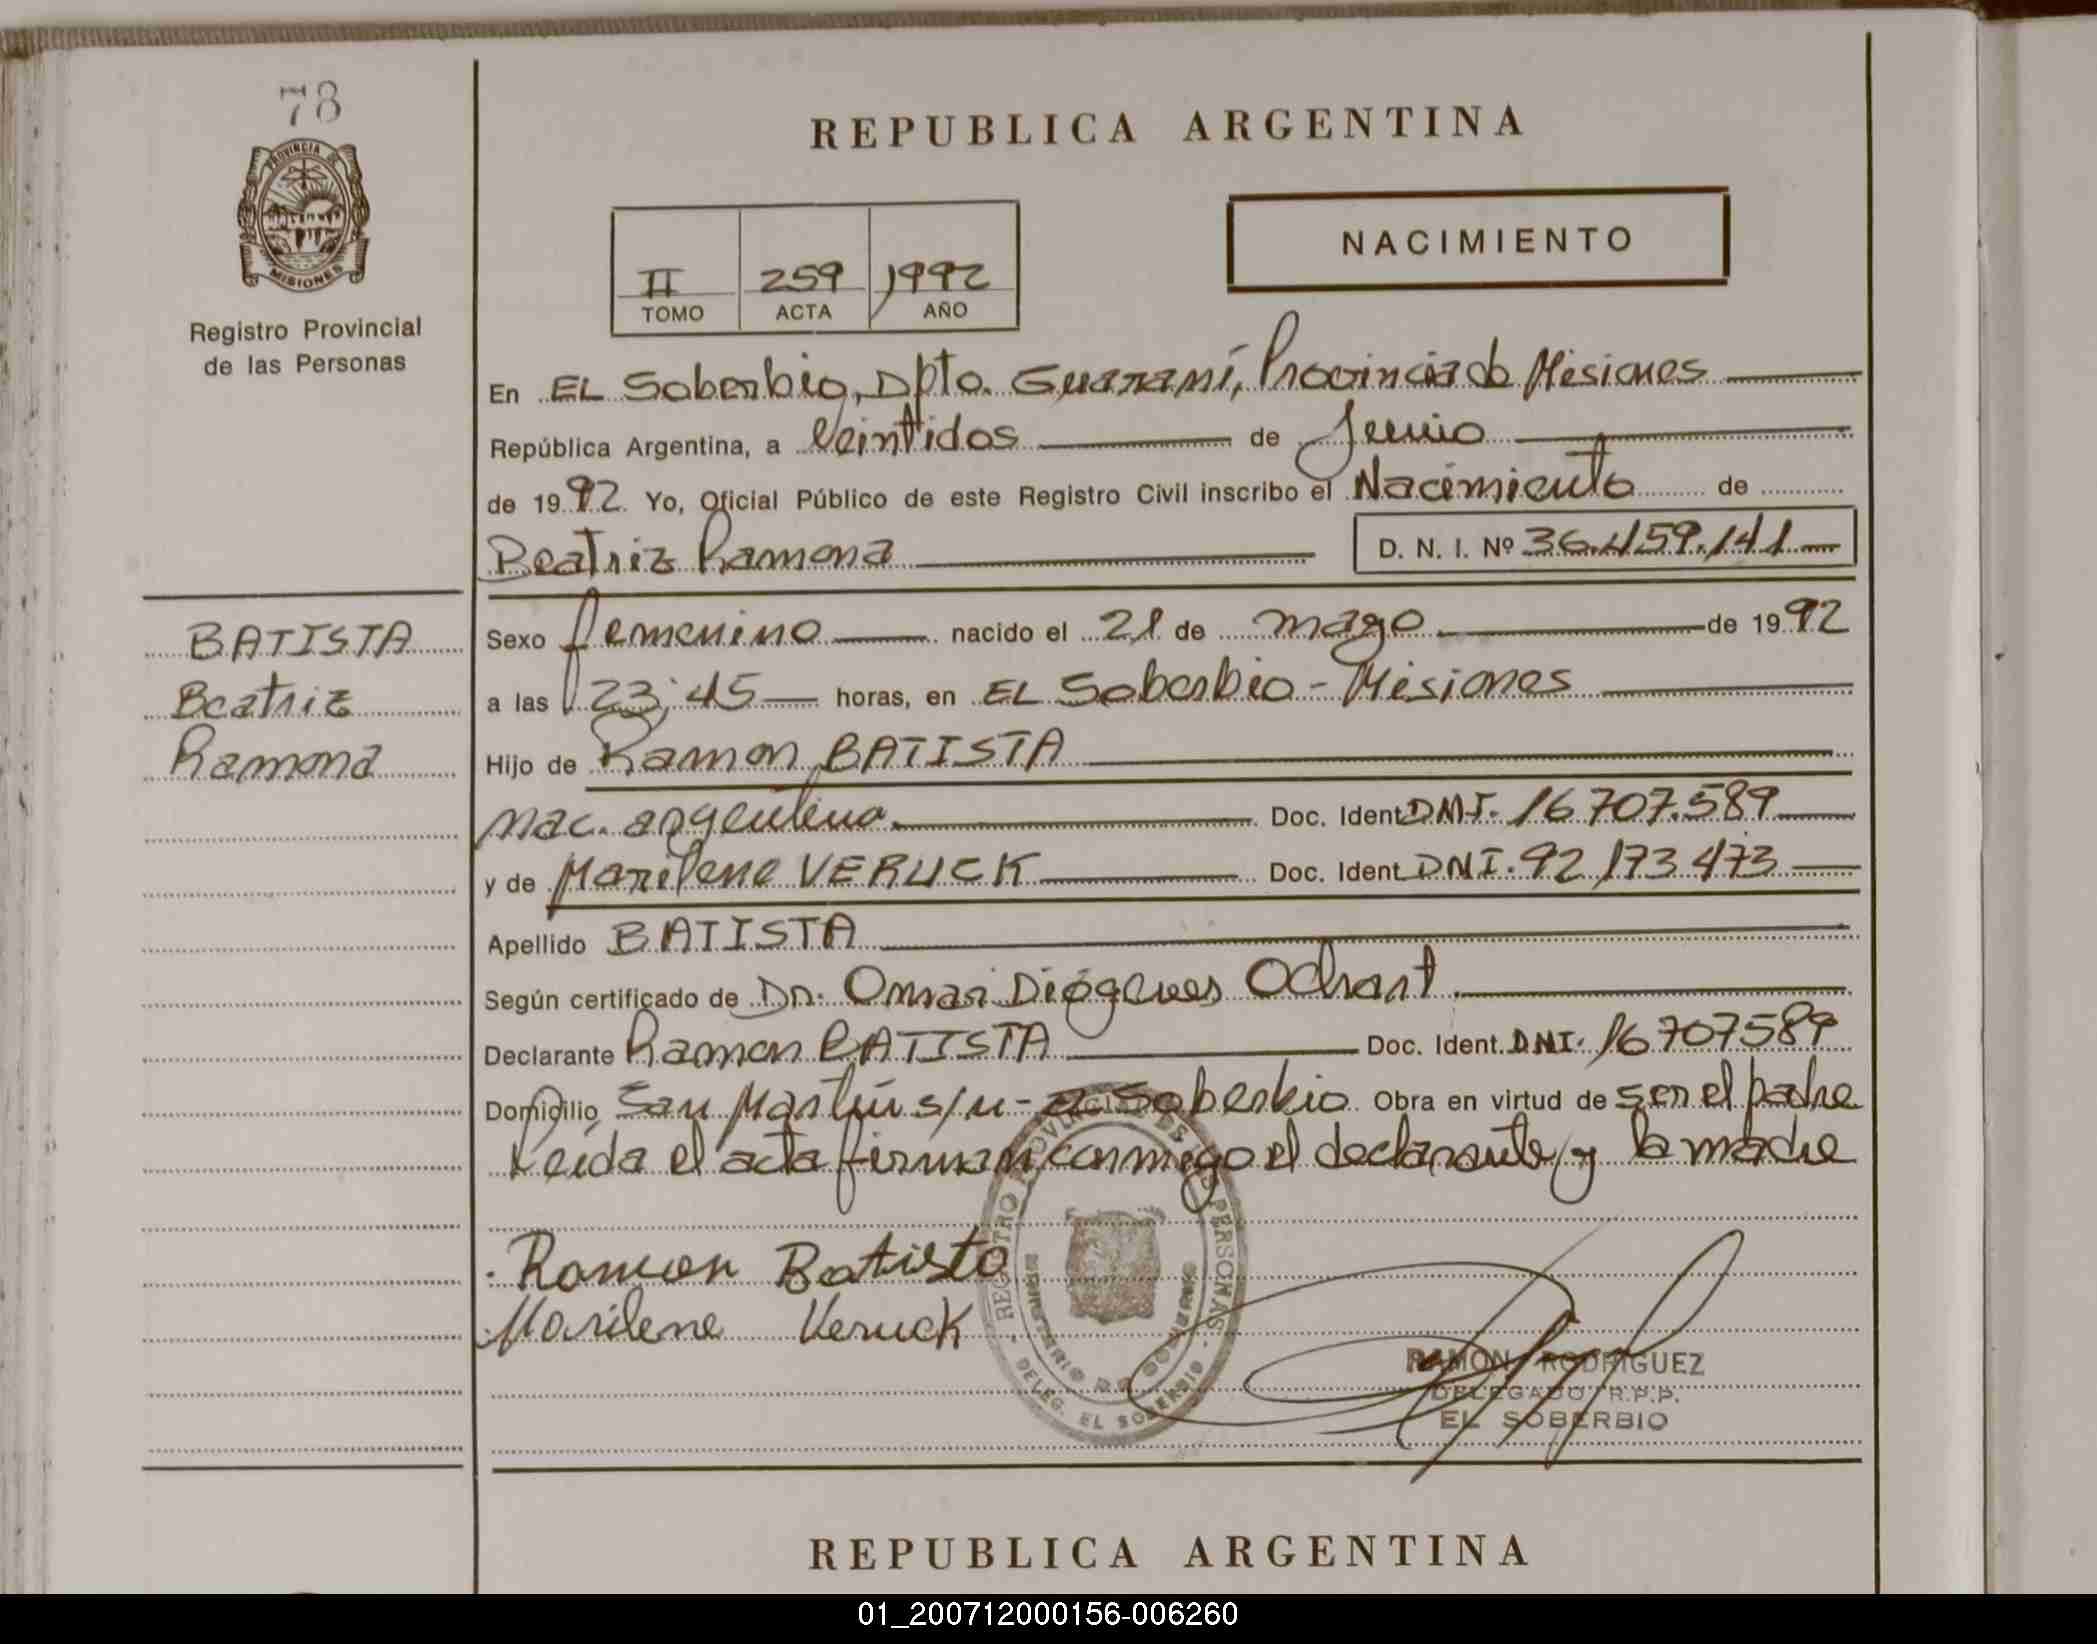 78
PROVINCIA DE
MISIONES
Registro Provincial
de las Personas
REPUBLICA ARGENTINA
NACIMIENTO
II 259 1992
TOMO ACTA AÑO
En EL Soberbio, Dpto. Guaraní, Provincia de Misiones
República Argentina, a Veintidos de Junio
de 1992 Yo, Oficial Público de este Registro Civil inscribo el Nacimiento de
Beatriz Ramona D. N. I. Nº 36.459.141
BATISTA
Beatriz
Ramona
Sexo femenino nacido el 21 de mayo de 1992
a las 23:45 horas, en EL Soberbio - Misiones
Hijo de Ramon BATISTA
nac. argentina. Doc. Ident. DNI. 16.707.589
y de Marilene VERUCK Doc. Ident. DNI. 92.173.473
Apellido BATISTA
Según certificado de Dr. Omar Diógenes Ochart.
Declarante Ramon BATISTA Doc. Ident. DNI. 16707589
Domicilio San Martin s/n - El Soberbio Obra en virtud de ser el padre
Leída el acta firman conmigo el declarante y la madre
Ramon Batista
Marilene Veruck
REGISTRO PROVINCIAL DE LAS PERSONAS
MINISTERIO DE GOBIERNO
DELEG. EL SOBERBIO
RAMON RODRIGUEZ
DELEGADO R.P.P.
EL SOBERBIO
REPUBLICA ARGENTINA
01_200712000156-006260